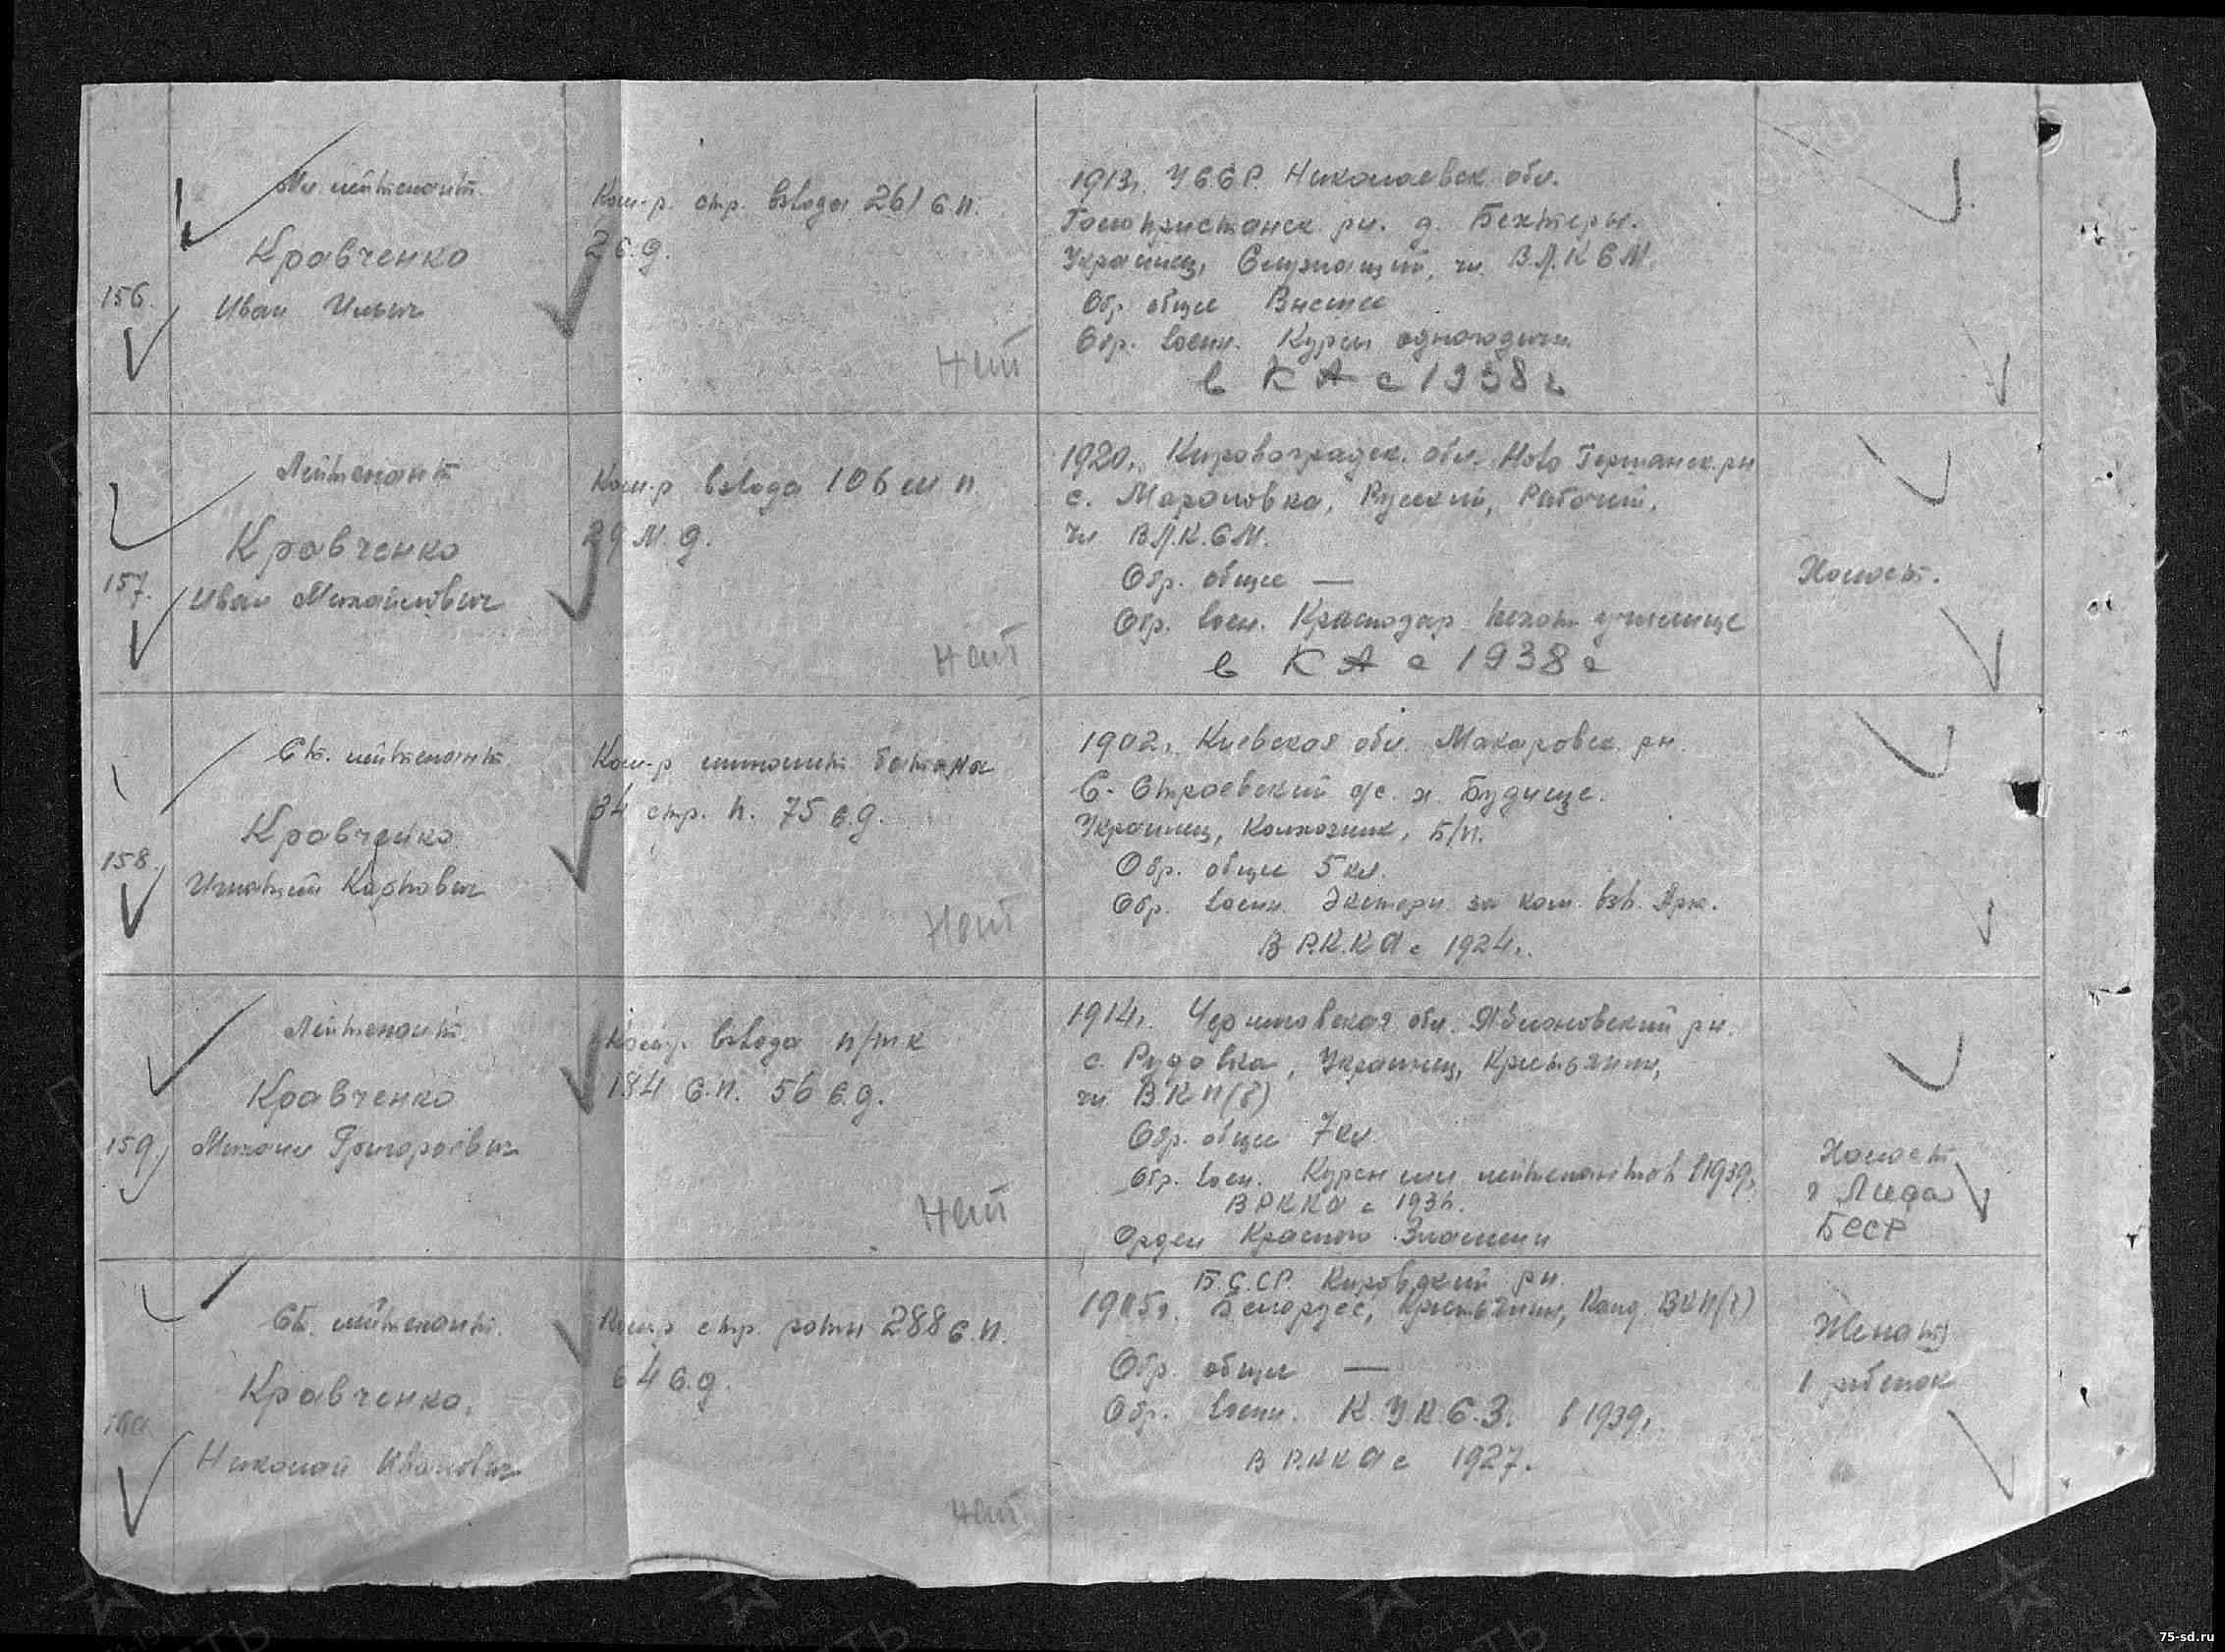 156.
Мл. лейтенант.
Кравченко
Иван Ильич
Ком-р. стр. взвода 261 с.п.
2 с.д.
нет
1913г. УССР. Николаевск. обл.
Голопристанск. рн. д. Бехтеры.
Украинец, Служащий, чл. В.Л.К.С.М.
Обр. общее Высшее
Обр. воен. Курсы одногодичн.
в КА с 1938 г
157.
Лейтенант
Кравченко
Иван Михайлович
Ком-р взвода 106 м п
29 м.д.
нет
1920г. Кировоградск. обл. Ново Германск. рн
с. Мароновка, Русский, Рабочий,
чл В.Л.К.С.М.
Обр. общее —
Обр. воен. Краснодар. пехот. училище
в КА с 1938 г
Холост.
158.
Ст. лейтенант.
Кравченко
Игнатий Карпович
Ком-р миномет. бат-на
34 стр. п. 75 с.д.
Нет
1902г. Киевская обл. Макаровск. рн.
С. Строевский с/с. х. Будище.
Украинец, Колхозник, Б/п.
Обр. общее 5 кл.
Обр. воен. Экстерн. за ком. взв. Арт.
В Р.К.К.А с 1924г.
159.
Лейтенант.
Кравченко
Михаил Григорьевич
Ком-р. взвода п/т к
184 с.п. 56 с.д.
Нет
1914г. Черниговская обл. Яблоновский рн.
с. Рудовка, Украинец, Крестьянин,
чл. ВКП(б)
Обр. общее 7 кл.
Обр. воен. Курсы мл. лейтенантов в 1939г.
В РККА с 193
Орден Красного Знамени
Холост
г Лида
БССР
160
Ст. лейтенант.
Кравченко.
Николай Иванович
Ком-р стр. роты 288 с.п.
64 с.д.
нет
Б.С.СР. Кировский рн.
1905г. Белорус, Крестьянин, Канд. ВКП(б)
Обр. общее —
Обр. воен. К.У.К.С.З. в 1939г.
В Р.К.К.А с 1927.
Женат
1 ребенок
75-sd.ru